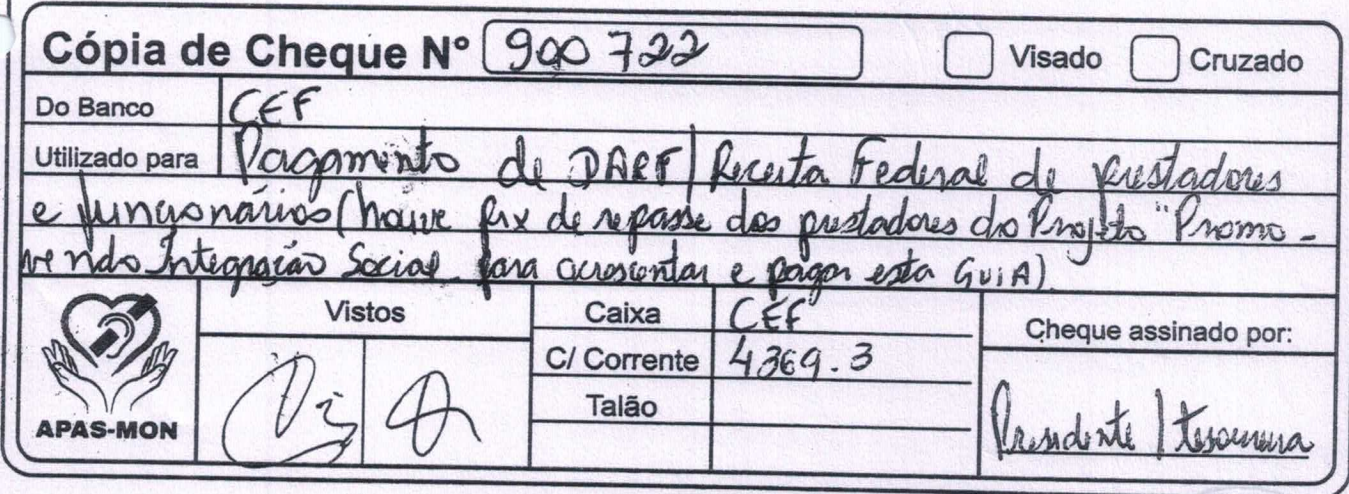 Cópia de Cheque Nº 900 722 Visado Cruzado
Do Banco CEF
Utilizado para Pagamento de DARF/Receita Federal de prestadores
e funcionários (houve pix de repasse dos prestadores do Projeto "Promo-
vendo Integração Social para acrescentar e pagar esta GUIA).
Vistos
Caixa CEF
C/ Corrente 4369.3
Talão
Cheque assinado por:
Presidente / tesoureira
APAS-MON